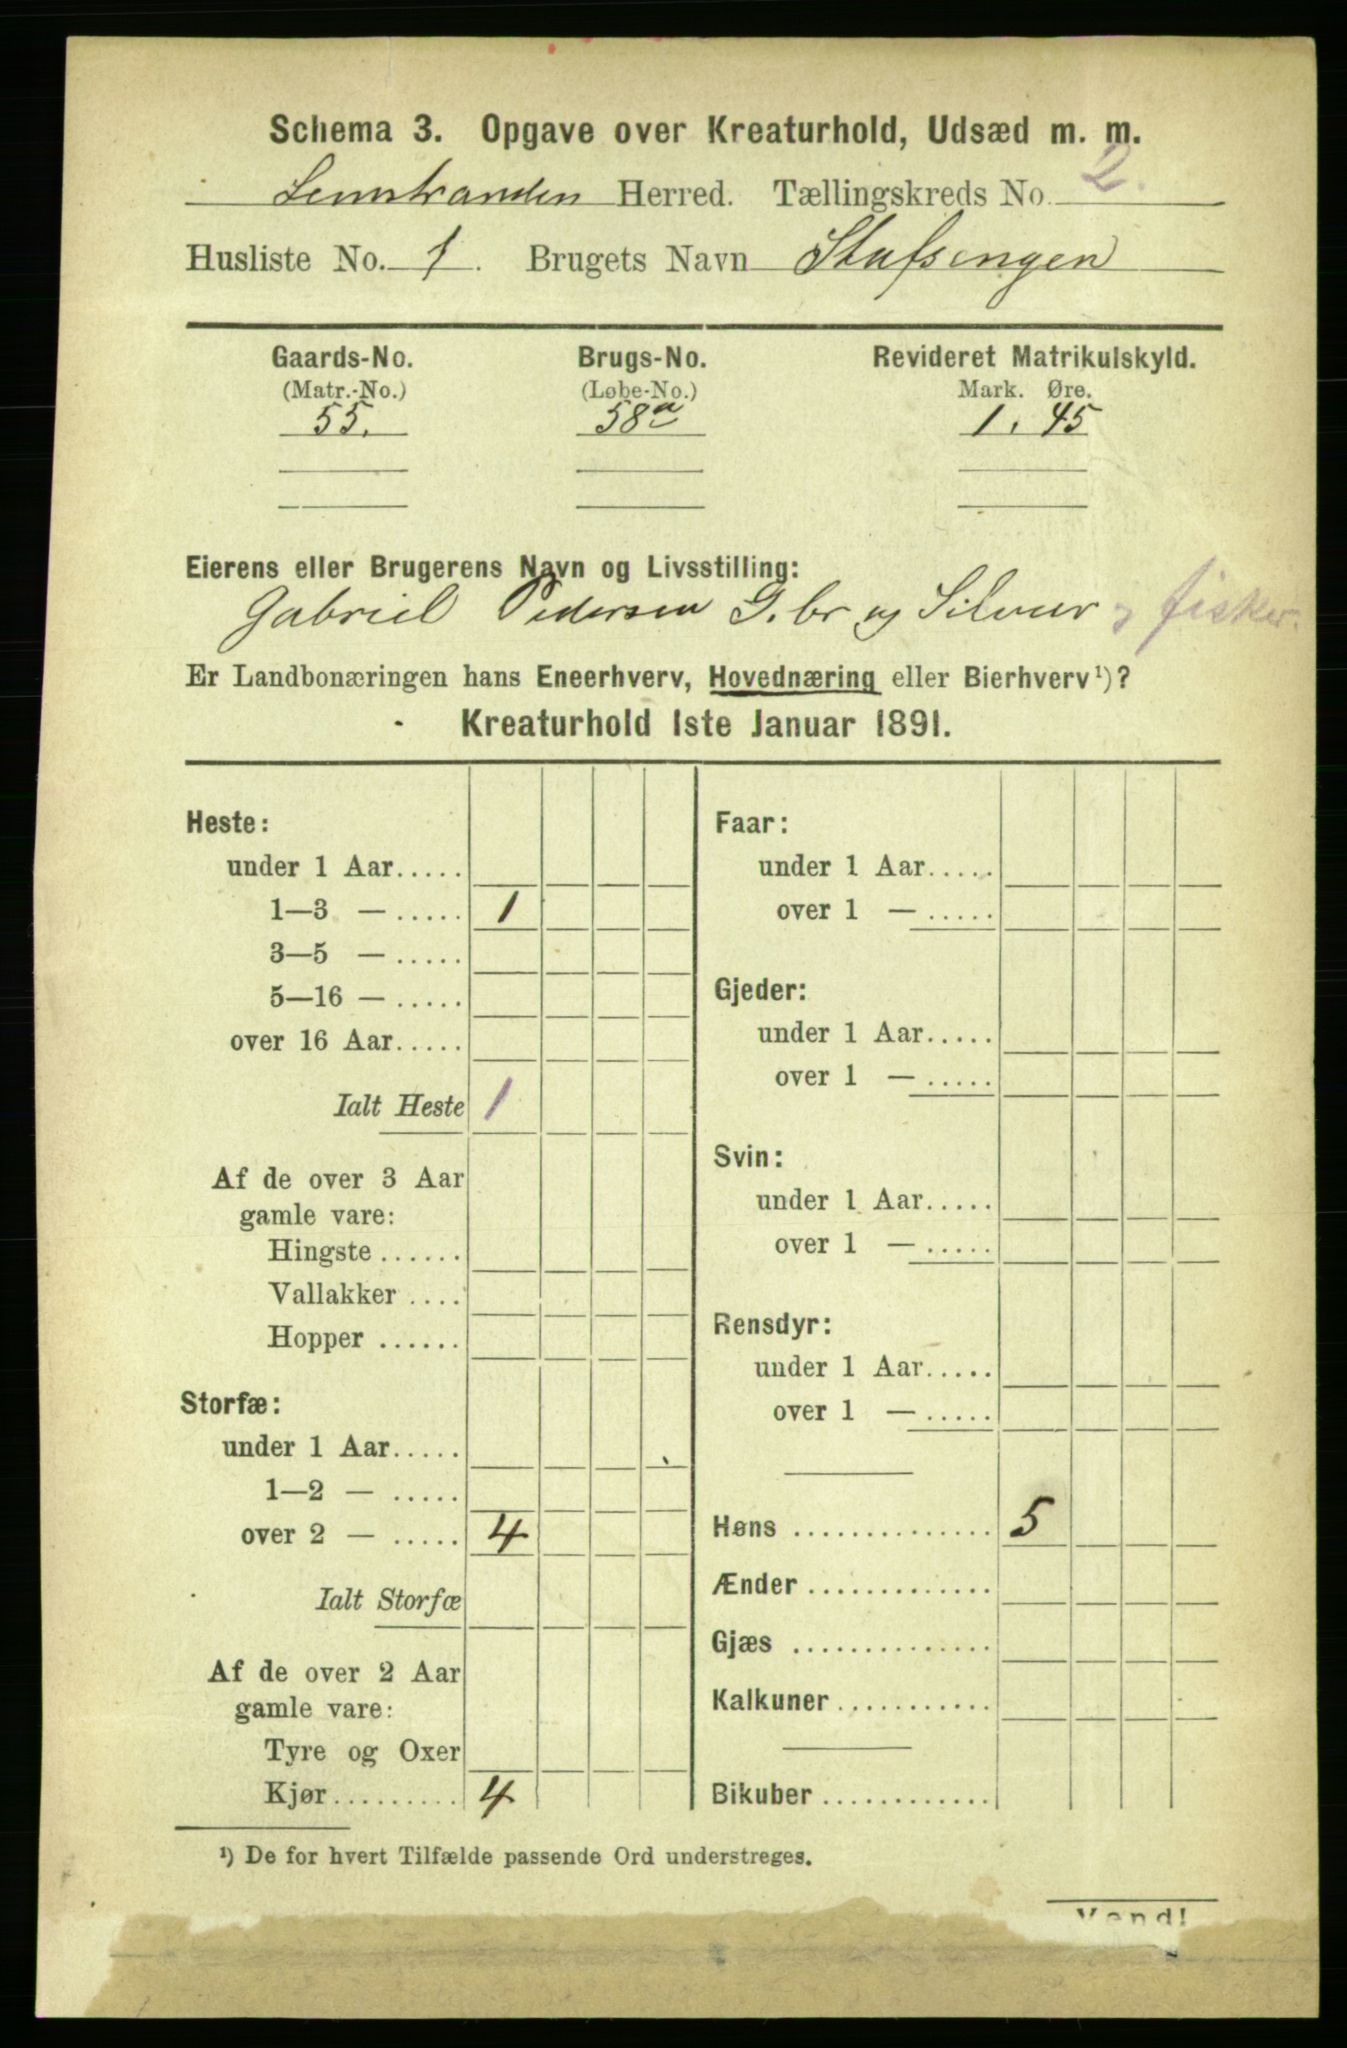 Schema 3. Opgave over Kreaturhold, Udsæd m. m.
Lenstranden Herred. Tællingskreds No. 2.
Husliste No. 1. Brugets Navn Stafsengen
Gaards-No. Brugs-No. Revideret Matrikulskyld.
(Matr.-No.) (Løbe-No.) Mark. Øre.
55. 58a 1. 45
Eierens eller Brugerens Navn og Livsstilling:
Gabriel Pedersen G.br og Selveier og fisker.
Er Landbonæringen hans Eneerhverv, Hovednæring eller Bierhverv¹)?
Kreaturhold 1ste Januar 1891.
Heste:
under 1 Aar.....
1—3 — ..... 1
3—5 — .....
5—16 — .....
over 16 Aar.....
Ialt Heste 1
Af de over 3 Aar
gamle vare:
Hingste ......
Vallakker ....
Hopper ......
Storfæ:
under 1 Aar.....
1—2 — .....
over 2 — ..... 4
Ialt Storfæ
Af de over 2 Aar
gamle vare:
Tyre og Oxer
Kjør......... 4
Faar:
under 1 Aar.....
over 1 — .....
Gjeder:
under 1 Aar.....
over 1 — .....
Svin:
under 1 Aar.....
over 1 — .....
Rensdyr:
under 1 Aar.....
over 1 — .....
Høns .............. 5
Ænder .............
Gjæs ..............
Kalkuner ...........
Bikuber ............
¹) De for hvert Tilfælde passende Ord understreges.
Vend!